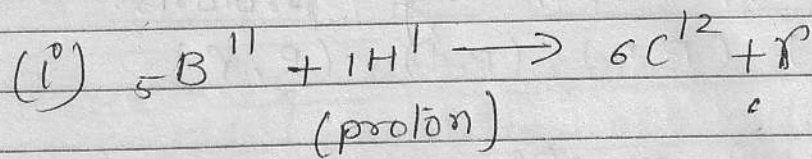 (i) ₅B¹¹ + ₁H¹ → ₆C¹² + γ
(proton)